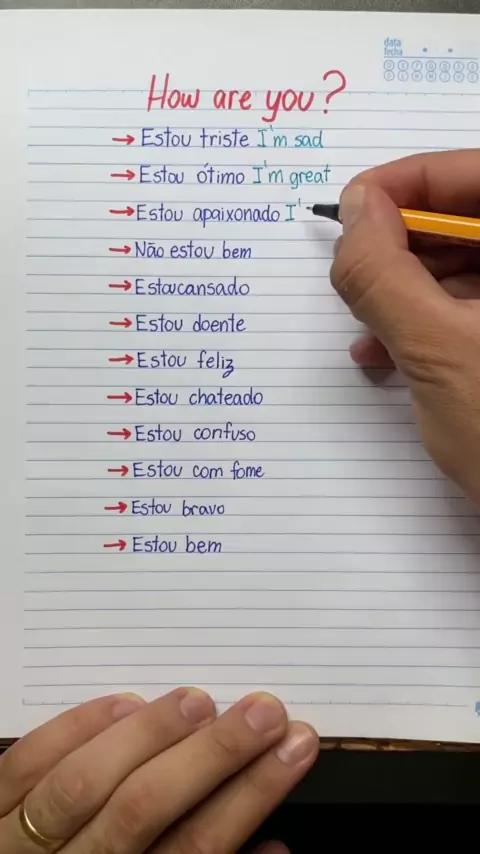 data
fecha
How are you?
→ Estou triste I'm sad
→ Estou ótimo I'm great
→ Estou apaixonado I'
→ Não estou bem
→ Estou cansado
→ Estou doente
→ Estou feliz
→ Estou chateado
→ Estou confuso
→ Estou com fome
→ Estou bravo
→ Estou bem